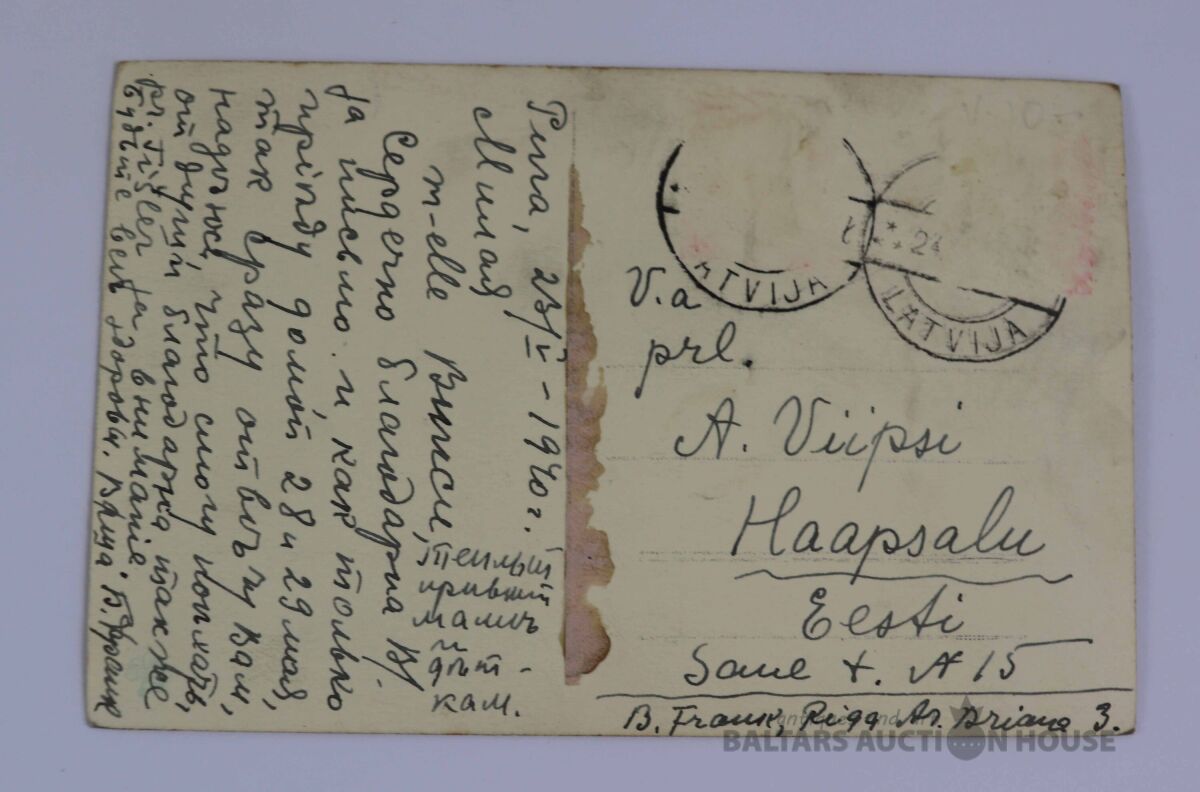 Рига, 23/V – 1940 г.
Милая
m-elle Выпси,
Сердечно благодарна Вам
за письмо и как только
пріѣду домой 28 и 29 мая,
так сразу отвѣчу Вам,
надѣюсь, что смогу поискать,
благодарна также
за вниманіе.
Будьте все здоровы. Ваша Б. Франк
теплый
привет
мамѣ
и
дѣт-
кам.
LATVIJA
24
LATVIJA
V.a
prl.
A. Viipsi
Haapsalu
Eesti
Saue t. № 15
B. Frank, Riga Ar. Briana 3.
BALTARS AUCTION HOUSE